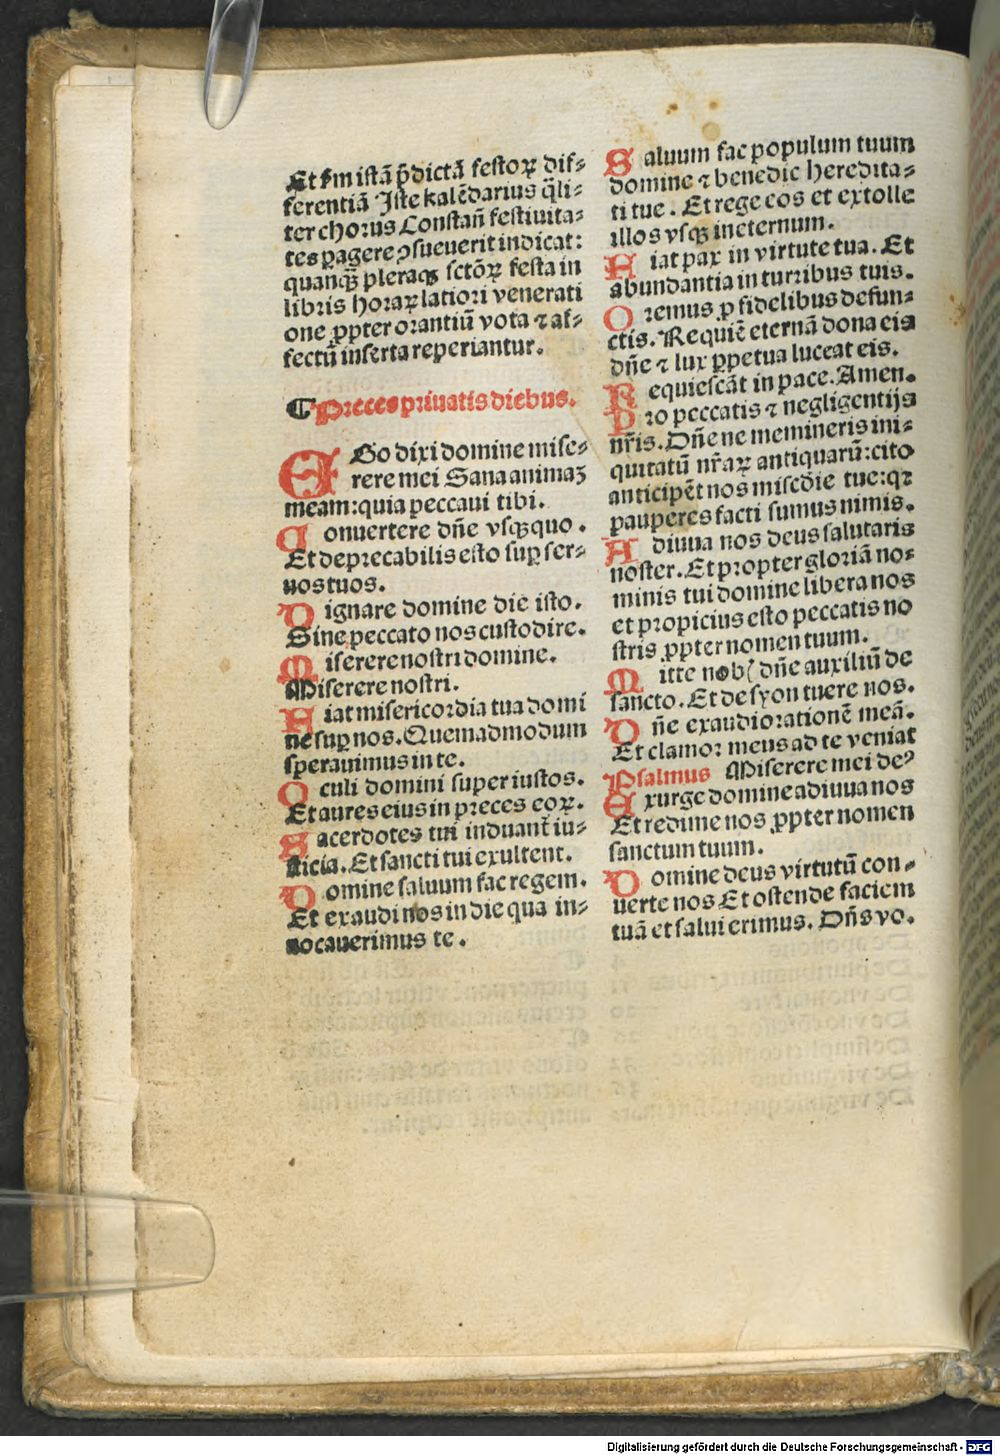 Et ẜm istā p̄dictā festoꝝ dif⸗
ferentiā Iste kalēdarius q̄li⸗
ter chorus Constan̄ festiuita⸗
tes ꝑagere ꝯsueuerit indicat:
quanqꝫ̄ pleraqꝫ sctōꝝ festa in
libris horaꝝ latiori venerati
one ꝓpter orantiū vota ⁊ af⸗
fectū inserta reperiantur.
¶Preces priuatis diebus.
EGo dixi domine mise⸗
rere mei Sana animaꝫ
meam: quia peccaui tibi.
Conuertere dn̄e vsqꝫ quo.
Et deprecabilis esto suꝑ ser⸗
uos tuos.
Dignare domine die isto.
Sine peccato nos custodire.
Miserere nostri domine.
Miserere nostri.
Fiat misericordia tua domi
ne suꝑ nos. Quemadmodum
sperauimus in te.
Oculi domini super iustos.
Et aures eius in preces eoꝝ.
Sacerdotes tui induant̄ iu⸗
sticia. Et sancti tui exultent.
Domine saluum fac regem.
Et exaudi nos in die qua in⸗
uocauerimus te.
Saluum fac populum tuum
domine ⁊ benedic heredita⸗
ti tue. Et rege eos et extolle
illos vsqꝫ in eternum.
Fiat pax in virtute tua. Et
abundantia in turribus tuis.
Oremus ꝓ fidelibus defun⸗
ctis. Requiē eternā dona eis
dn̄e ⁊ lux ꝑpetua luceat eis.
Requiescāt in pace. Amen.
Pro peccatis ⁊ negligentijs
nr̄is. Dn̄e ne memineris ini⸗
quitatū nr̄aꝝ antiquarū: cito
anticipēt nos miscdie tue: qꝛ
pauperes facti sumus nimis.
Adiuua nos deus salutaris
noster. Et propter gloriā no⸗
minis tui domine libera nos
et propicius esto peccatis no
stris ꝓpter nomen tuum.
Mitte nobꝭ dn̄e auxiliū de
sancto. Et de syon tuere nos.
Dn̄e exaudi orationē meā.
Et clamor meus ad te veniat
Psalmus Miserere mei deꝰ
Exurge domine adiuua nos
Et redime nos ꝓpter nomen
sanctum tuum.
Domine deus virtutū con⸗
uerte nos Et ostende faciem
tuā et salui erimus. Dn̄s vo.
Digitalisierung gefördert durch die Deutsche Forschungsgemeinschaft - DFG